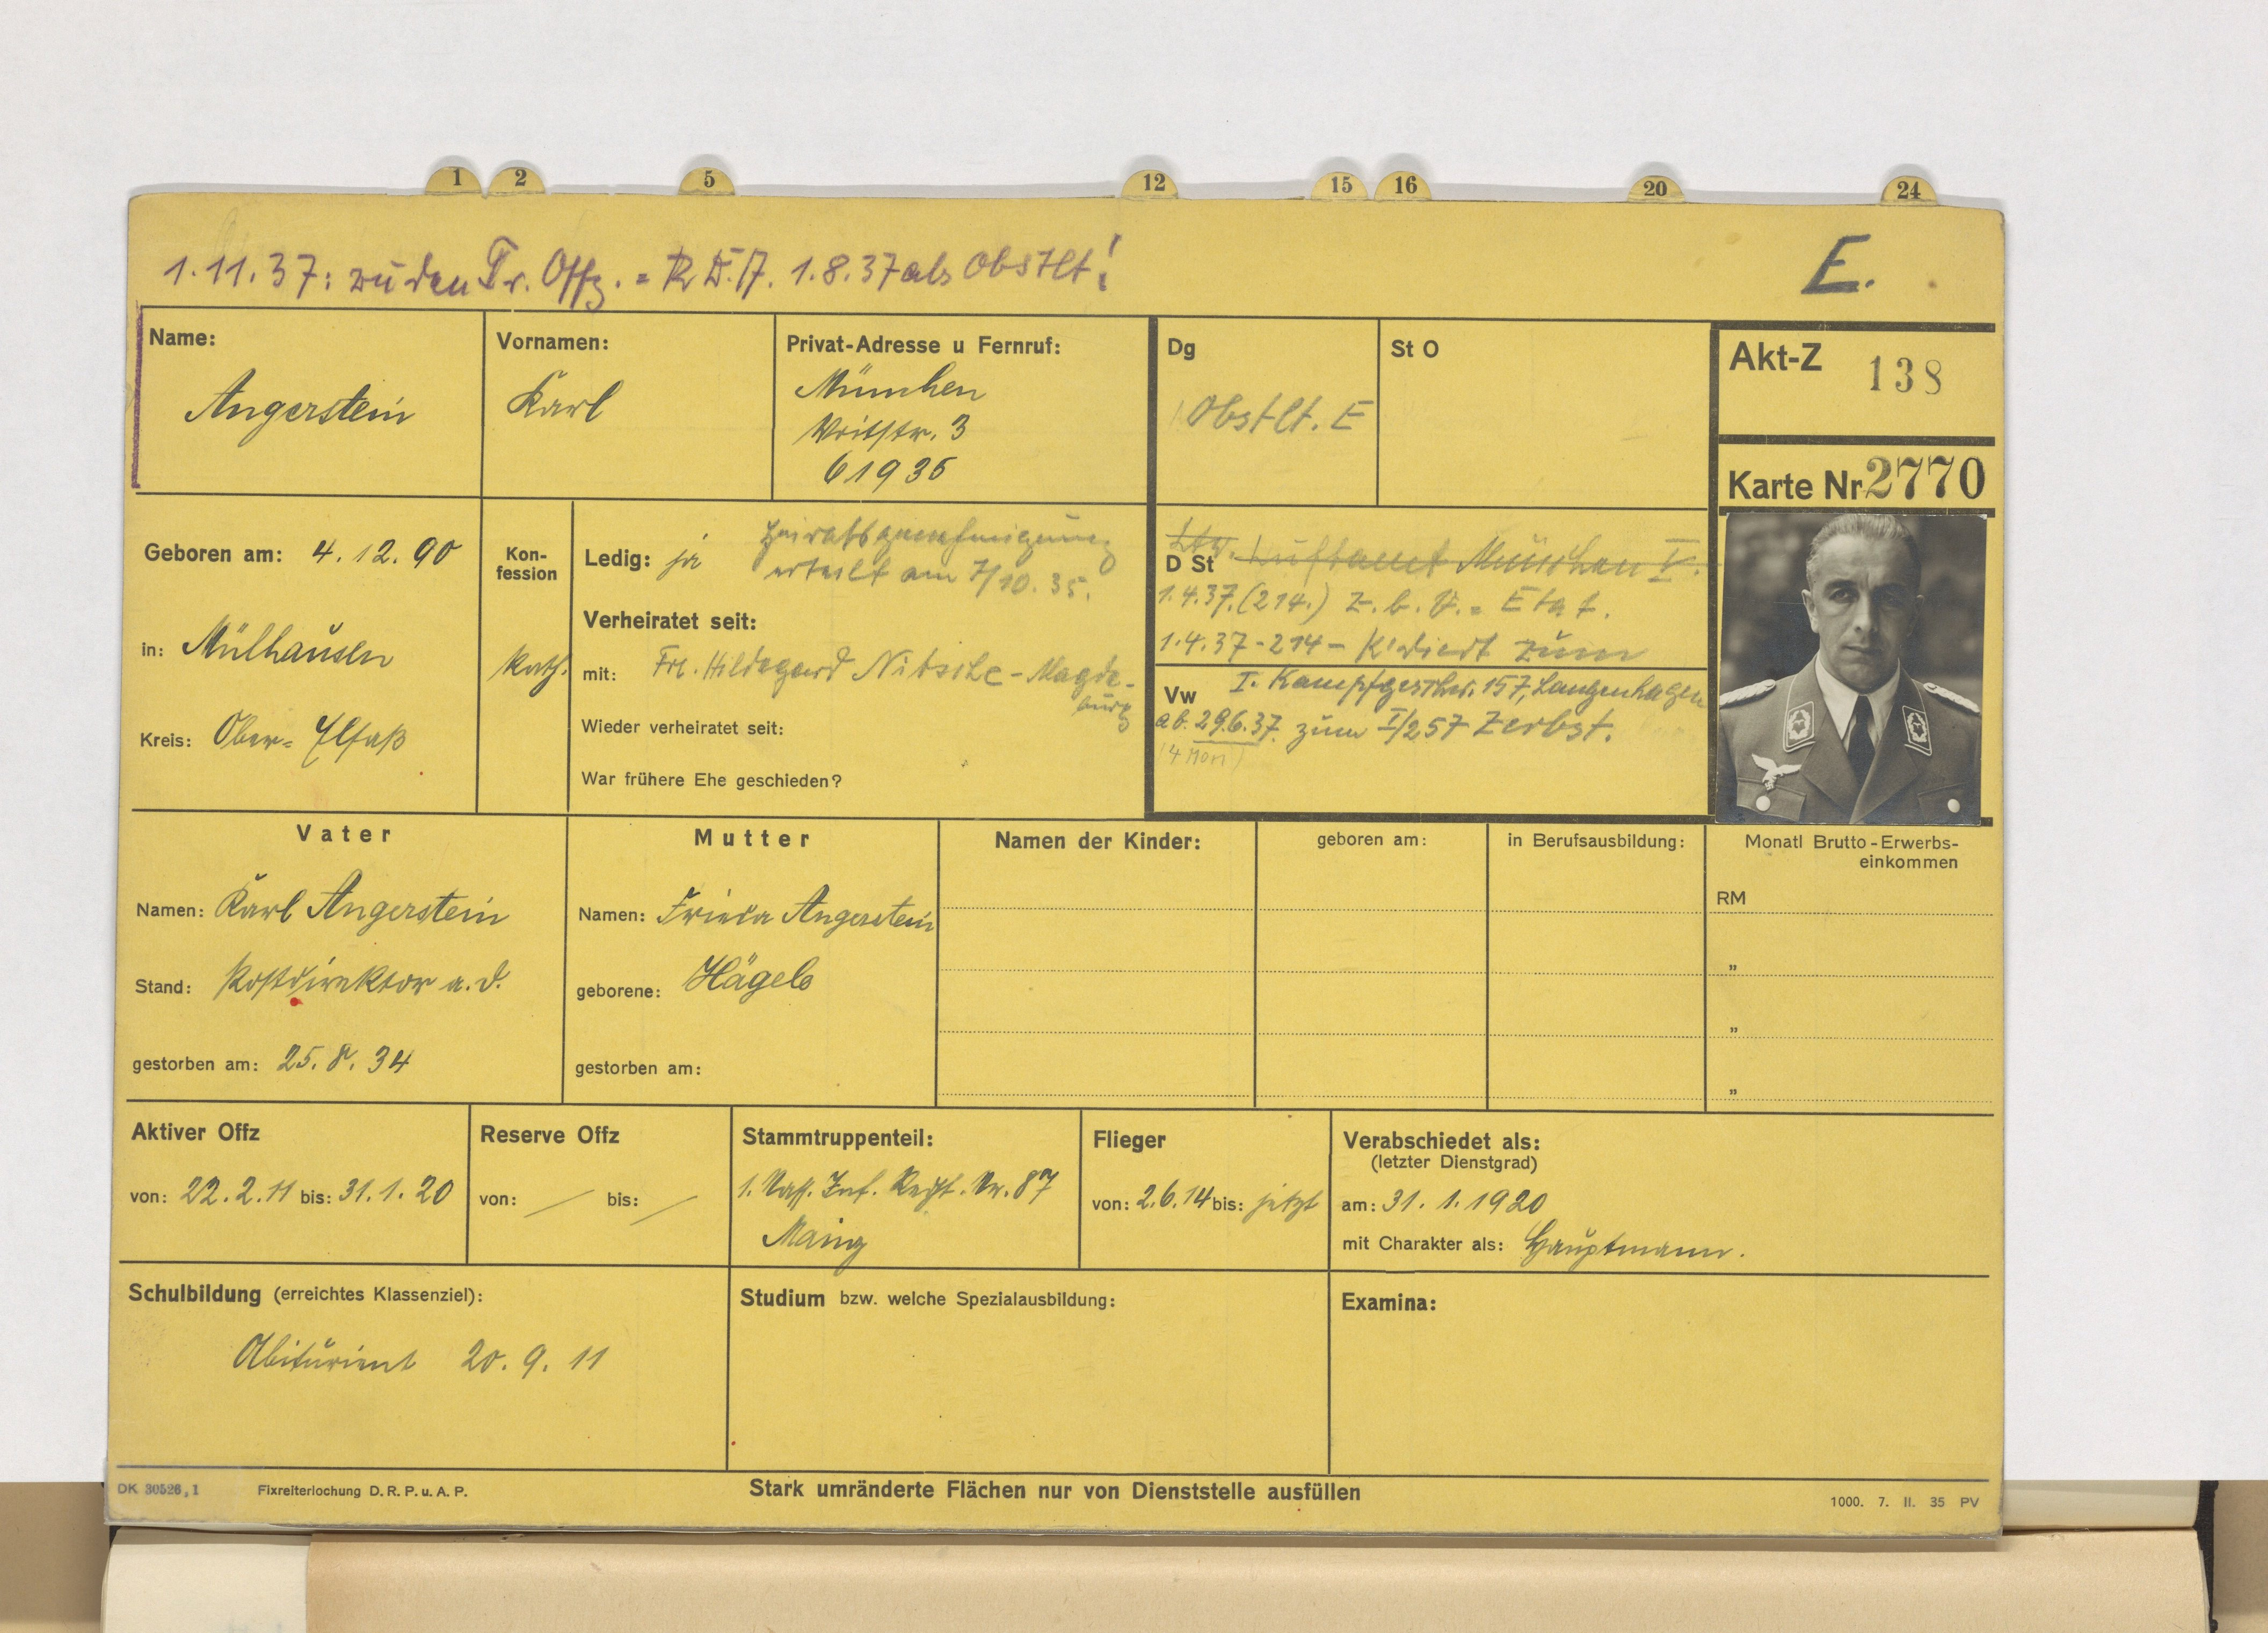 1 2 5 12 15 16 20 24
1.11.37: zu den Tr. Offz. = R D. A. 1.8.37 als Obstlt!
E.
Name:
Angerstein
Vornamen:
Karl
Privat-Adresse u Fernruf:
München
Veitstr. 3
61935
Dg
Obstlt. E
St O
Akt-Z 138
Karte Nr 2770
Geboren am: 4.12.90
in: Mülhausen
Kreis: Ober-Elsaß
Kon-
fession
kath.
Ledig: ja
Heiratsgenehmigung
erteilt am 7/10. 35.
Verheiratet seit:
mit: Frl. Hildegard Nitsche - Magde-
burg
Wieder verheiratet seit:
War frühere Ehe geschieden?
D St Luftamt München V.
1.4.37. (214.) z. b. V. = Etat.
1.4.37 - 214 - K'diert zum
Vw I. Kampfgeschw. 157, Langenhagen
ab. 29.6.37. zum I/257 Zerbst.
(4 Mon)
Vater
Namen: Karl Angerstein
Stand: Postdirektor a. D.
gestorben am: 25. 8. 34
Mutter
Namen: Frieda Angerstein
geborene: Hägele
gestorben am:
Namen der Kinder:
geboren am:
in Berufsausbildung:
Monatl Brutto-Erwerbs-
einkommen
RM
„
„
„
Aktiver Offz
von: 22.2.11 bis: 31.1.20
Reserve Offz
von: — bis: —
Stammtruppenteil:
1. Nass. Inf. Regt. Nr. 87
Mainz
Flieger
von: 2.6.14 bis: jetzt
Verabschiedet als:
(letzter Dienstgrad)
am: 31. 1. 1920
mit Charakter als: Hauptmann.
Schulbildung (erreichtes Klassenziel):
Abiturient 20. 9. 11
Studium bzw. welche Spezialausbildung:
Examina:
DK 30526,1
Fixreiterlochung D. R. P. u. A. P.
Stark umränderte Flächen nur von Dienststelle ausfüllen
1000. 7. II. 35 PV